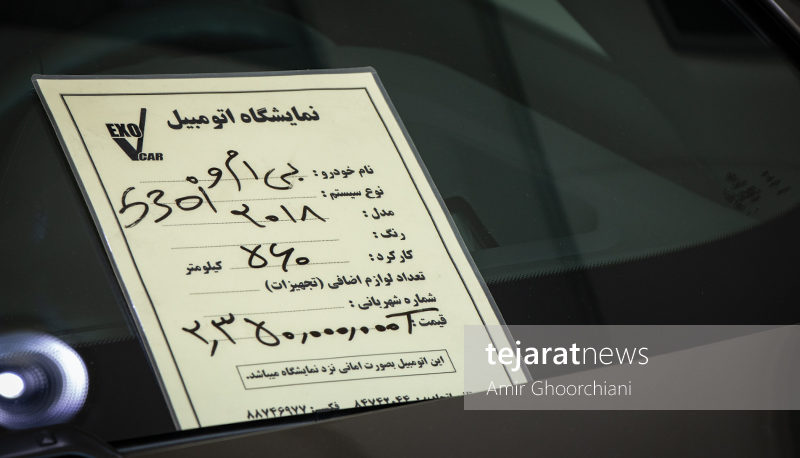 نمایشگاه اتومبیل
EXO CAR
نام خودرو : بی ام و
نوع سیستم : 530i
مدل : ۲۰۱۸
رنگ :
کارکرد : ۷۶۰ کیلومتر
تعداد لوازم اضافی (تجهیزات)
شماره شهربانی :
قیمت : ۲,۳۷۰,۰۰۰,۰۰۰ T
این اتومبیل بصورت امانی نزد نمایشگاه میباشد.
فکس: ۸۸۷۴۶۹۷۷
tejaratnews
Amir Ghoorchiani